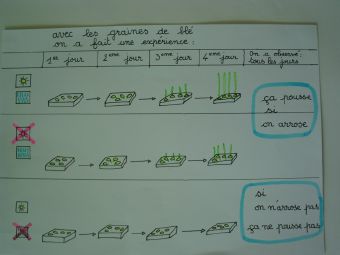 avec les graines de blé
on a fait une expérience :
1er jour 2ème jour 3ème jour 4ème jour On a observé :
tous les jours
ça pousse
si
on arrose
si
on n'arrose pas
ça ne pousse pas